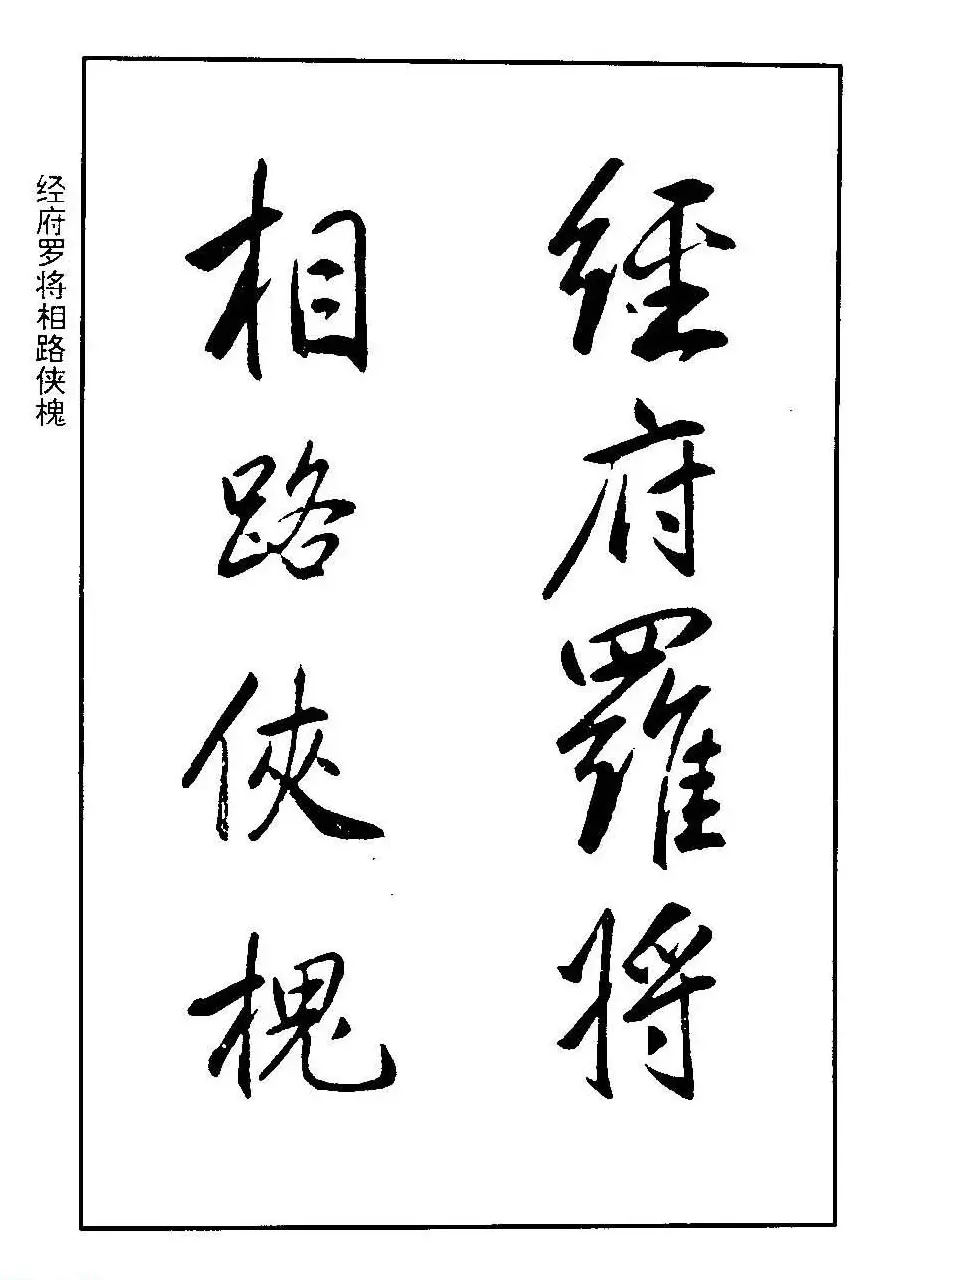 經府羅将
相路俠槐
经府罗将相路侠槐